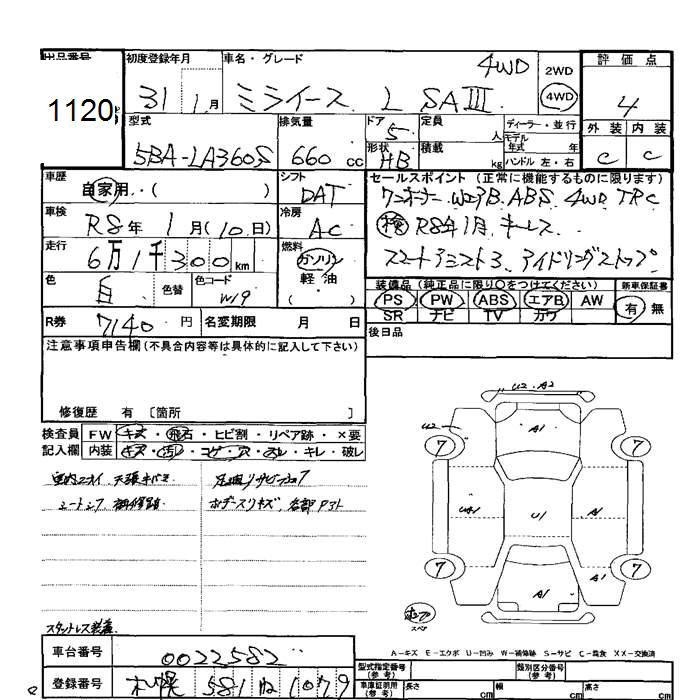 出品番号 初度登録年月 車名・グレード 4WD 2WD 評価点
1120 31 1月 ミライース L SAIII 4WD 4
型式 排気量 ドア 定員 ディーラー・並行 外装 内装
5BA-LA360S 660cc 5 人 モデル年式 年 C C
形状 HB 積載 kg ハンドル 左・右
車歴 シフト セールスポイント (正常に機能するものに限ります)
自家用・( ) DAT ワンオーナー WエアB ABS 4WD TRC
車検 冷房 検 R8年1月 キーレス
R8年1月(10日) AC スマートアシスト3 アイドリングストップ
走行 6万1千300km 燃料 ガソリン 軽油 ( )
色 色替 色コード 装備品 (純正品に限り○をつけてください) 新車保証書
白 W19 PS PW ABS エアB AW 有 無
SR ナビ TV カワ
R券 7140円 名変期限 月 日 後日品
注意事項申告欄(不具合内容等は具体的に記入して下さい)
修復歴 有 〔箇所 〕
検査員 FW キズ・飛石・ヒビ割・リペア跡・×要
記入欄 内装 キズ・汚レ・コゲ・穴・スレ・キレ・破レ
室内ニオイ、天張キバミ 足廻リサビ
シートシワ ボデースリキズ、各部
スタットレス装着
U2 A2
U2 A1
7 7
U1 A1
7 7
A1 A1
スペア
A-キズ E-エクボ U-凹み W-補修跡 S-サビ C-腐食 XX-交換済
車台番号 0022582 型式指定番号(参考) 類別区分番号(参考)
登録番号 札幌 581 ね 1079 車庫証明用(参考) 長さ cm 幅 cm 高さ cm